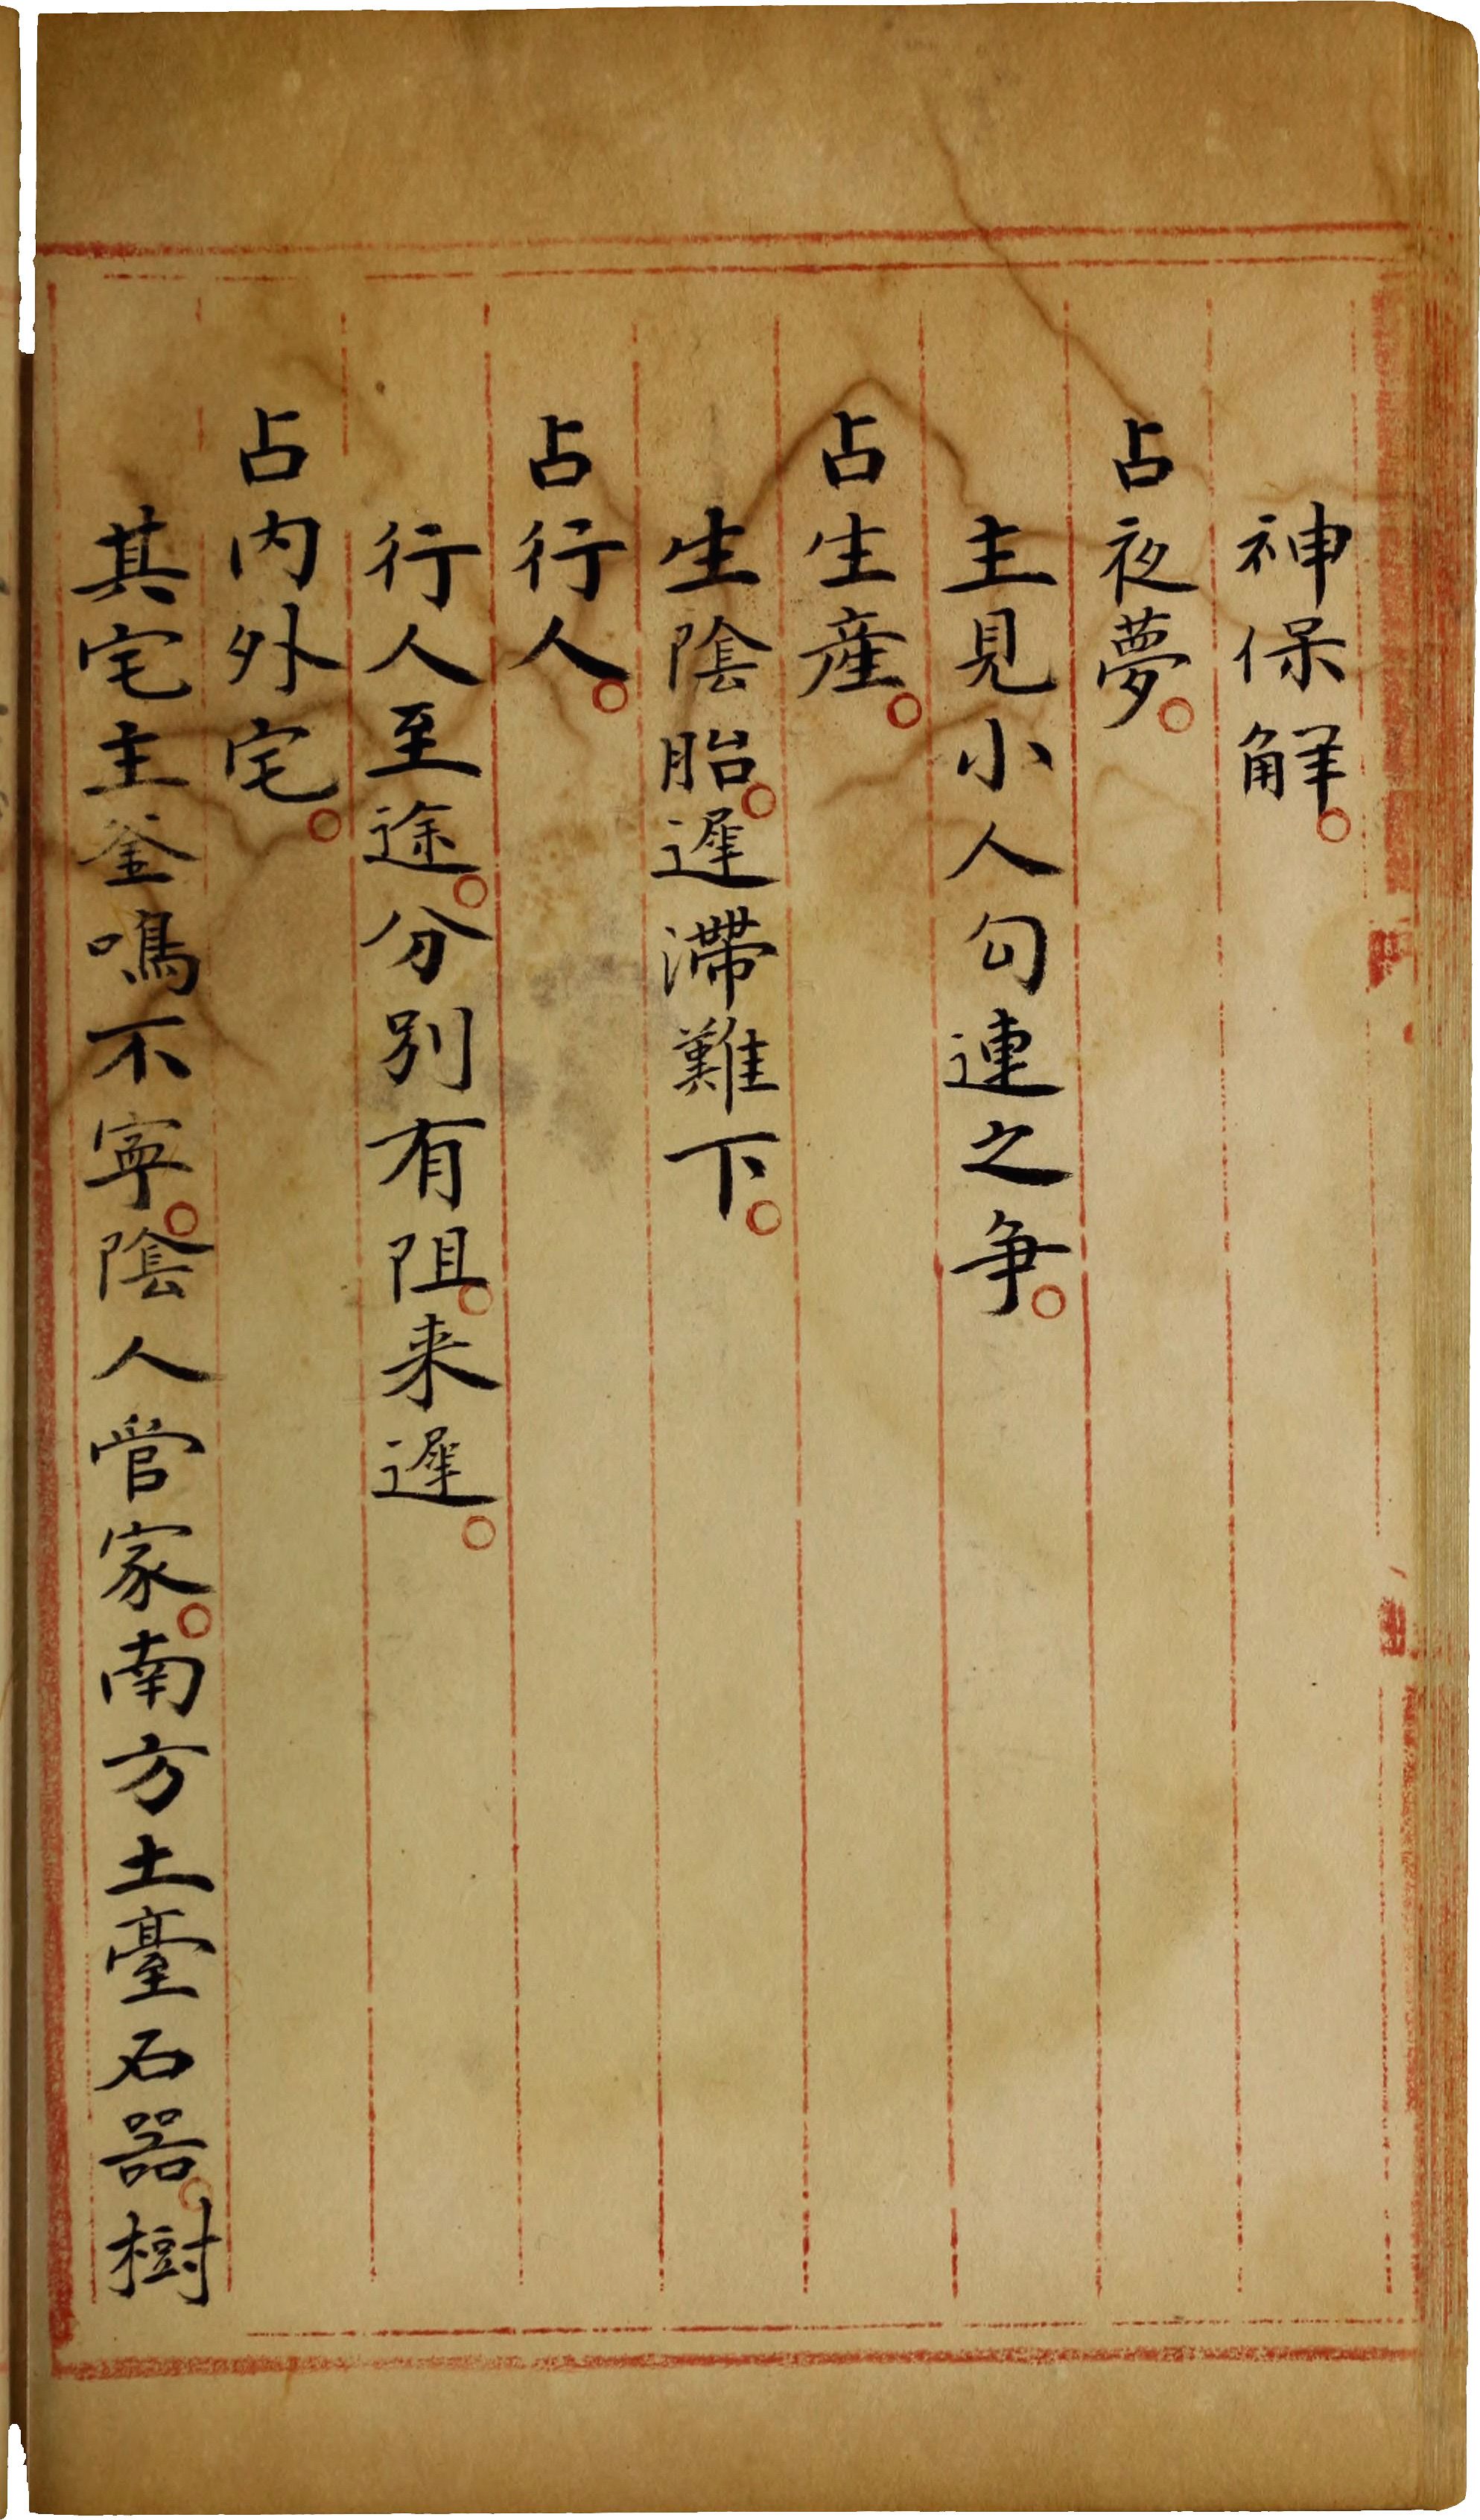 神保解。
占夜夢。
主見小人勾連之争。
占生産。
生陰胎。遲滯難下。
占行人。
行人至途。分别有阻。来遲。
占内外宅。
其宅主釜鳴不寧。陰人管家。南方土臺石器。樹